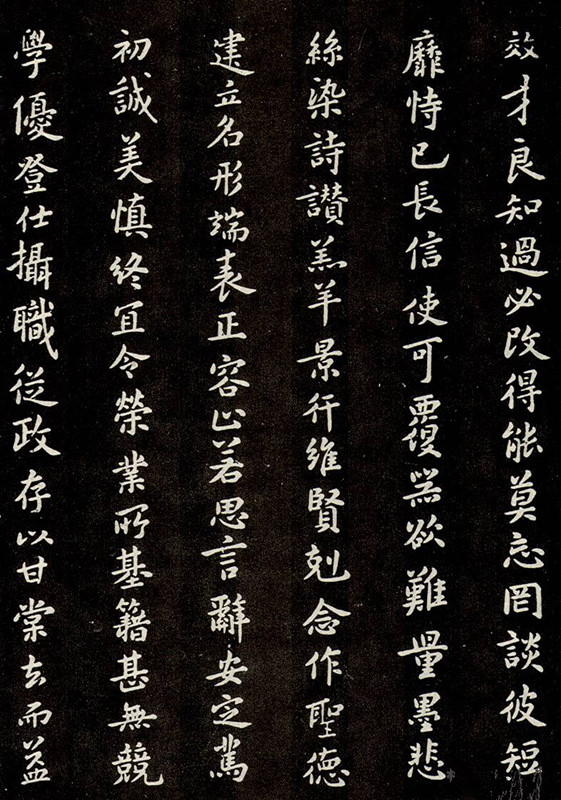 效才良知過必改得能莫忘罔談彼短
靡恃已長信使可覆器欲難量墨悲
絲染詩讃羔羊景行維賢剋念作聖德
建立名形端表正容止若思言辭安定篤
初誠美慎終宜令榮業所基籍甚無競
學優登仕攝職從政存以甘棠去而益